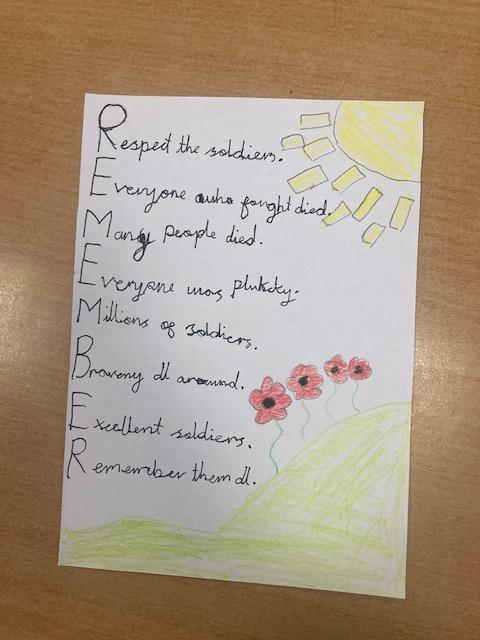 Respect the soldiers.
Everyone who fought died.
Many people died.
Everyone was pluksty.
Millions of soldiers.
Bravery all around.
Excellent soldiers.
Remember them all.